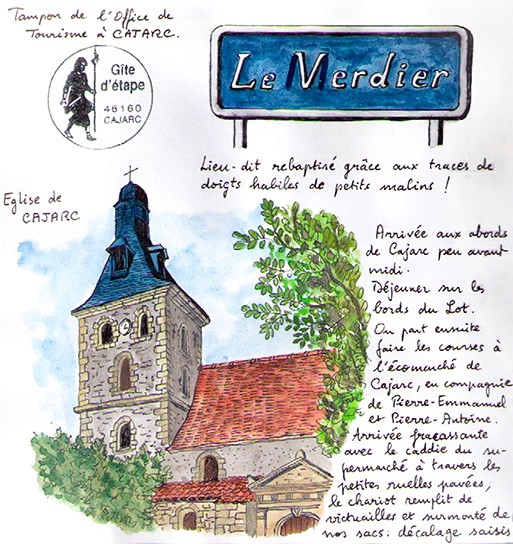 Tampon de l'Office de
Tourisme à CAJARC.
Gîte
d'étape
46160
CAJARC
Le Merdier
Lieu-dit rebaptisé grâce aux traces de
doigts habiles de petits malins !
Eglise de
CAJARC
Arrivée aux abords
de Cajarc peu avant
midi.
Déjeuner sur les
bords du Lot.
On part ensuite
faire les courses à
l'écomarché de
Cajarc, en compagnie
de Pierre-Emmanuel
et Pierre-Antoine.
Arrivée fracassante
avec le caddie du su-
permarché à travers les
petites ruelles pavées,
le chariot remplit de
victuailles et surmonté de
nos sacs: décalage saisis